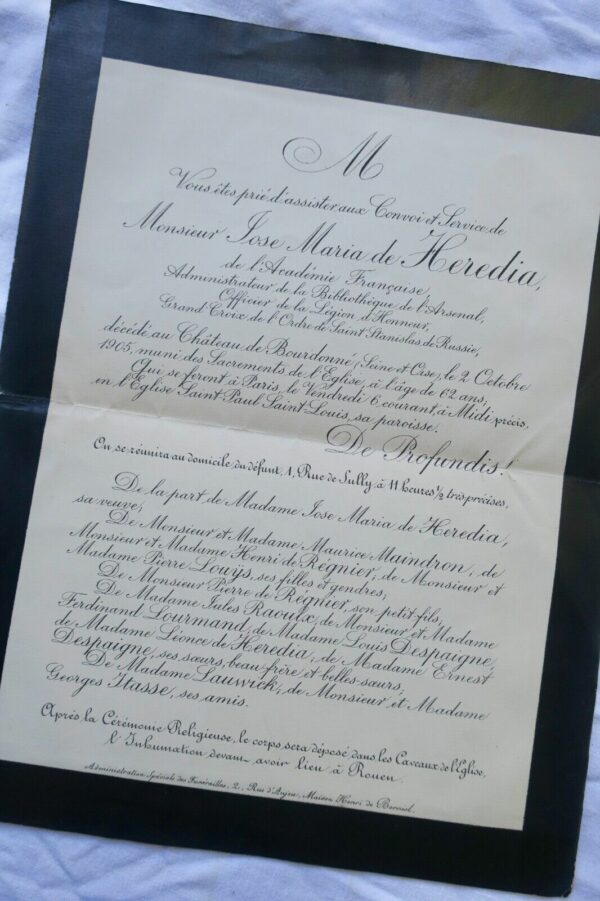 M
Vous êtes prié d'assister aux Convoi et Service de
Monsieur Jose Maria de Heredia,
de l'Académie Française,
Administrateur de la Bibliothèque de l'Arsenal,
Officier de la Légion d'Honneur,
Grand Croix de l'Ordre de Saint Stanislas de Russie,
décédé au Château de Bourdonné, (Seine et Oise), le 2 Octobre
1905, muni des Sacrements de l'Eglise, à l'âge de 62 ans;
Qui se feront à Paris, le Vendredi 6 courant, à Midi précis,
en l'Eglise Saint Paul Saint-Louis, sa paroisse.
De Profundis!
On se réunira au domicile du défunt, 1, Rue de Sully à 11 heures ½ très précises,
De la part de Madame Jose Maria de Heredia,
sa veuve;
De Monsieur et Madame Maurice Maindron, de
Monsieur et Madame Henri de Régnier, de Monsieur et
Madame Pierre Louÿs, ses filles et gendres;
De Monsieur Pierre de Régnier, son petit-fils,
De Madame Jules Raoulx, de Monsieur et Madame
Ferdinand Lourmand, de Madame Louis Despaigne,
de Madame Léonce de Heredia, de Madame Ernest
Despaigne, ses sœurs, beau-frère et belles-sœurs;
De Madame Lauwick, de Monsieur et Madame
Georges Itasse, ses amis.
Après la Cérémonie Religieuse, le corps sera déposé dans les Caveaux de l'Eglise,
l'Inhumation devant avoir lieu à Rouen.
Administration Spéciale des Funérailles, 2, Rue d'Aguesseau, Maison Henri de Borniol.